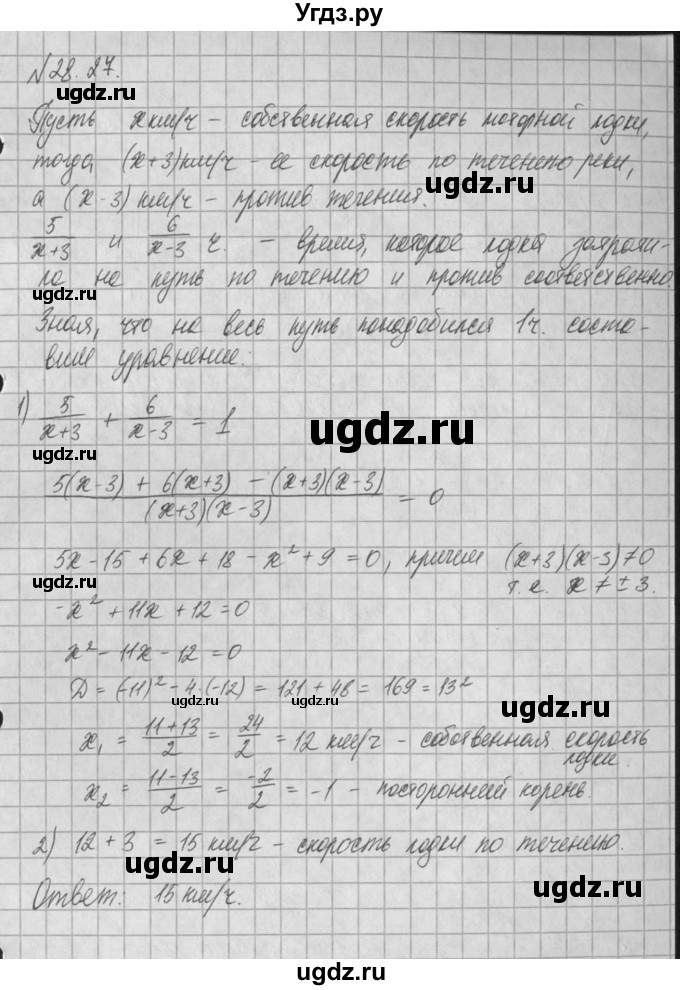 Угдз.ру
№28.27.
Пусть x км/ч – собственная скорость моторной лодки,
тогда (x+3) км/ч – ее скорость по течению реки,
а (x-3) км/ч – против течения.
5/(x+3) и 6/(x-3) ч. – время, которое лодка затрати-
ла на путь по течению и против соответственно.
Зная, что на весь путь понадобился 1 ч. соста-
вим уравнение:
1) 5/(x+3) + 6/(x-3) = 1
(5(x-3) + 6(x+3) - (x+3)(x-3))/((x+3)(x-3)) = 0
5x - 15 + 6x + 18 - x² + 9 = 0, причем (x+3)(x-3) ≠ 0
т.к. x ≠ ± 3.
-x² + 11x + 12 = 0
x² - 11x - 12 = 0
D = (-11)² - 4·(-12) = 121 + 48 = 169 = 13²
x₁ = (11+13)/2 = 24/2 = 12 км/ч – собственная скорость
лодки.
x₂ = (11-13)/2 = -2/2 = -1 – посторонний корень.
2) 12 + 3 = 15 км/ч – скорость лодки по течению.
Ответ: 15 км/ч.
ugdz.ru